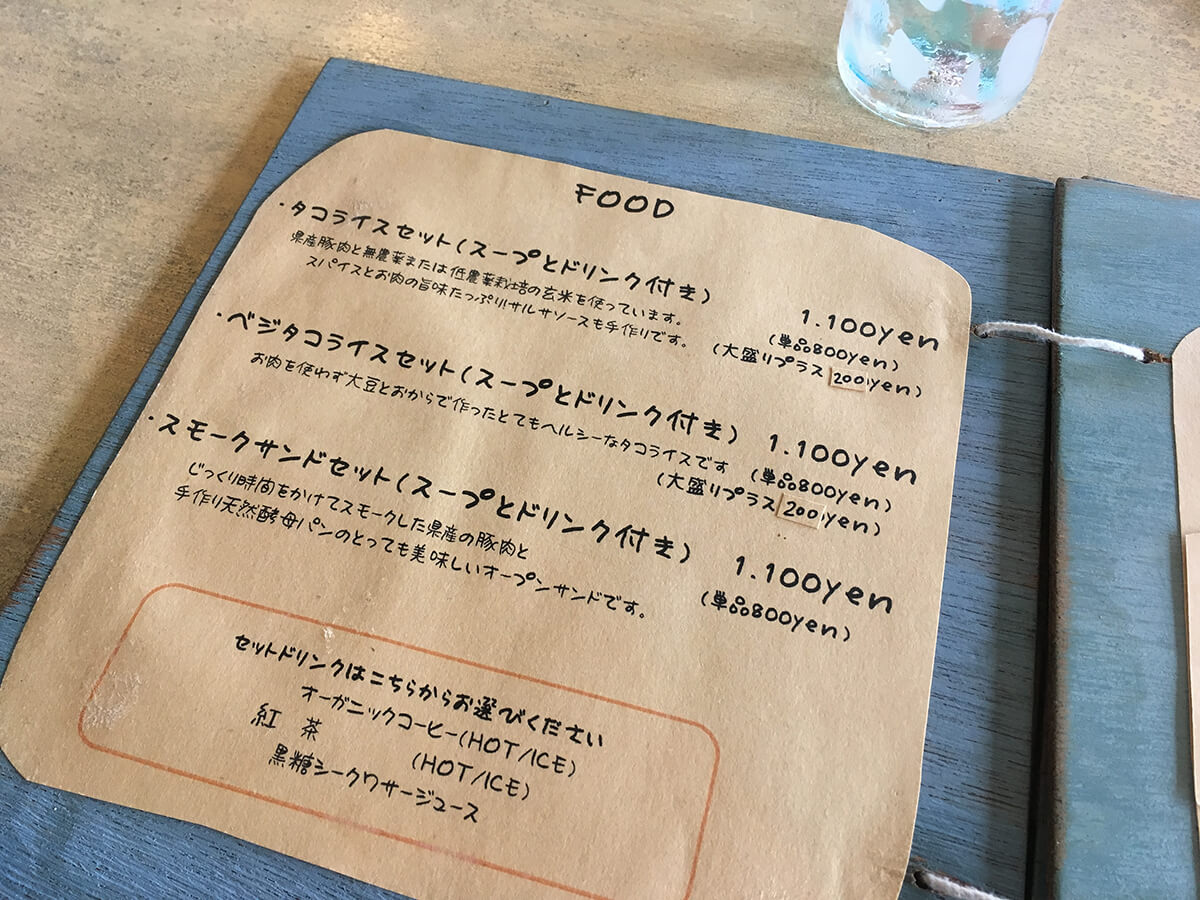 FOOD
・タコライスセット(スープとドリンク付き) 1.100yen
県産豚肉と無農薬または低農薬栽培の玄米を使っています。 (単品800yen)
スパイスとお肉の旨味たっぷり!!サルサソースも手作りです。 (大盛りプラス200yen)
・ベジタコライスセット(スープとドリンク付き) 1.100yen
お肉を使わず大豆とおからで作ったとてもヘルシーなタコライスです (単品800yen)
(大盛りプラス200yen)
・スモークサンドセット(スープとドリンク付き) 1.100yen
じっくり時間をかけてスモークした県産の豚肉と (単品800yen)
手作り天然酵母パンのとっても美味しいオープンサンドです。
セットドリンクはこちらからお選びください
オーガニックコーヒー(HOT/ICE)
紅 茶 (HOT/ICE)
黒糖シークワサージュース